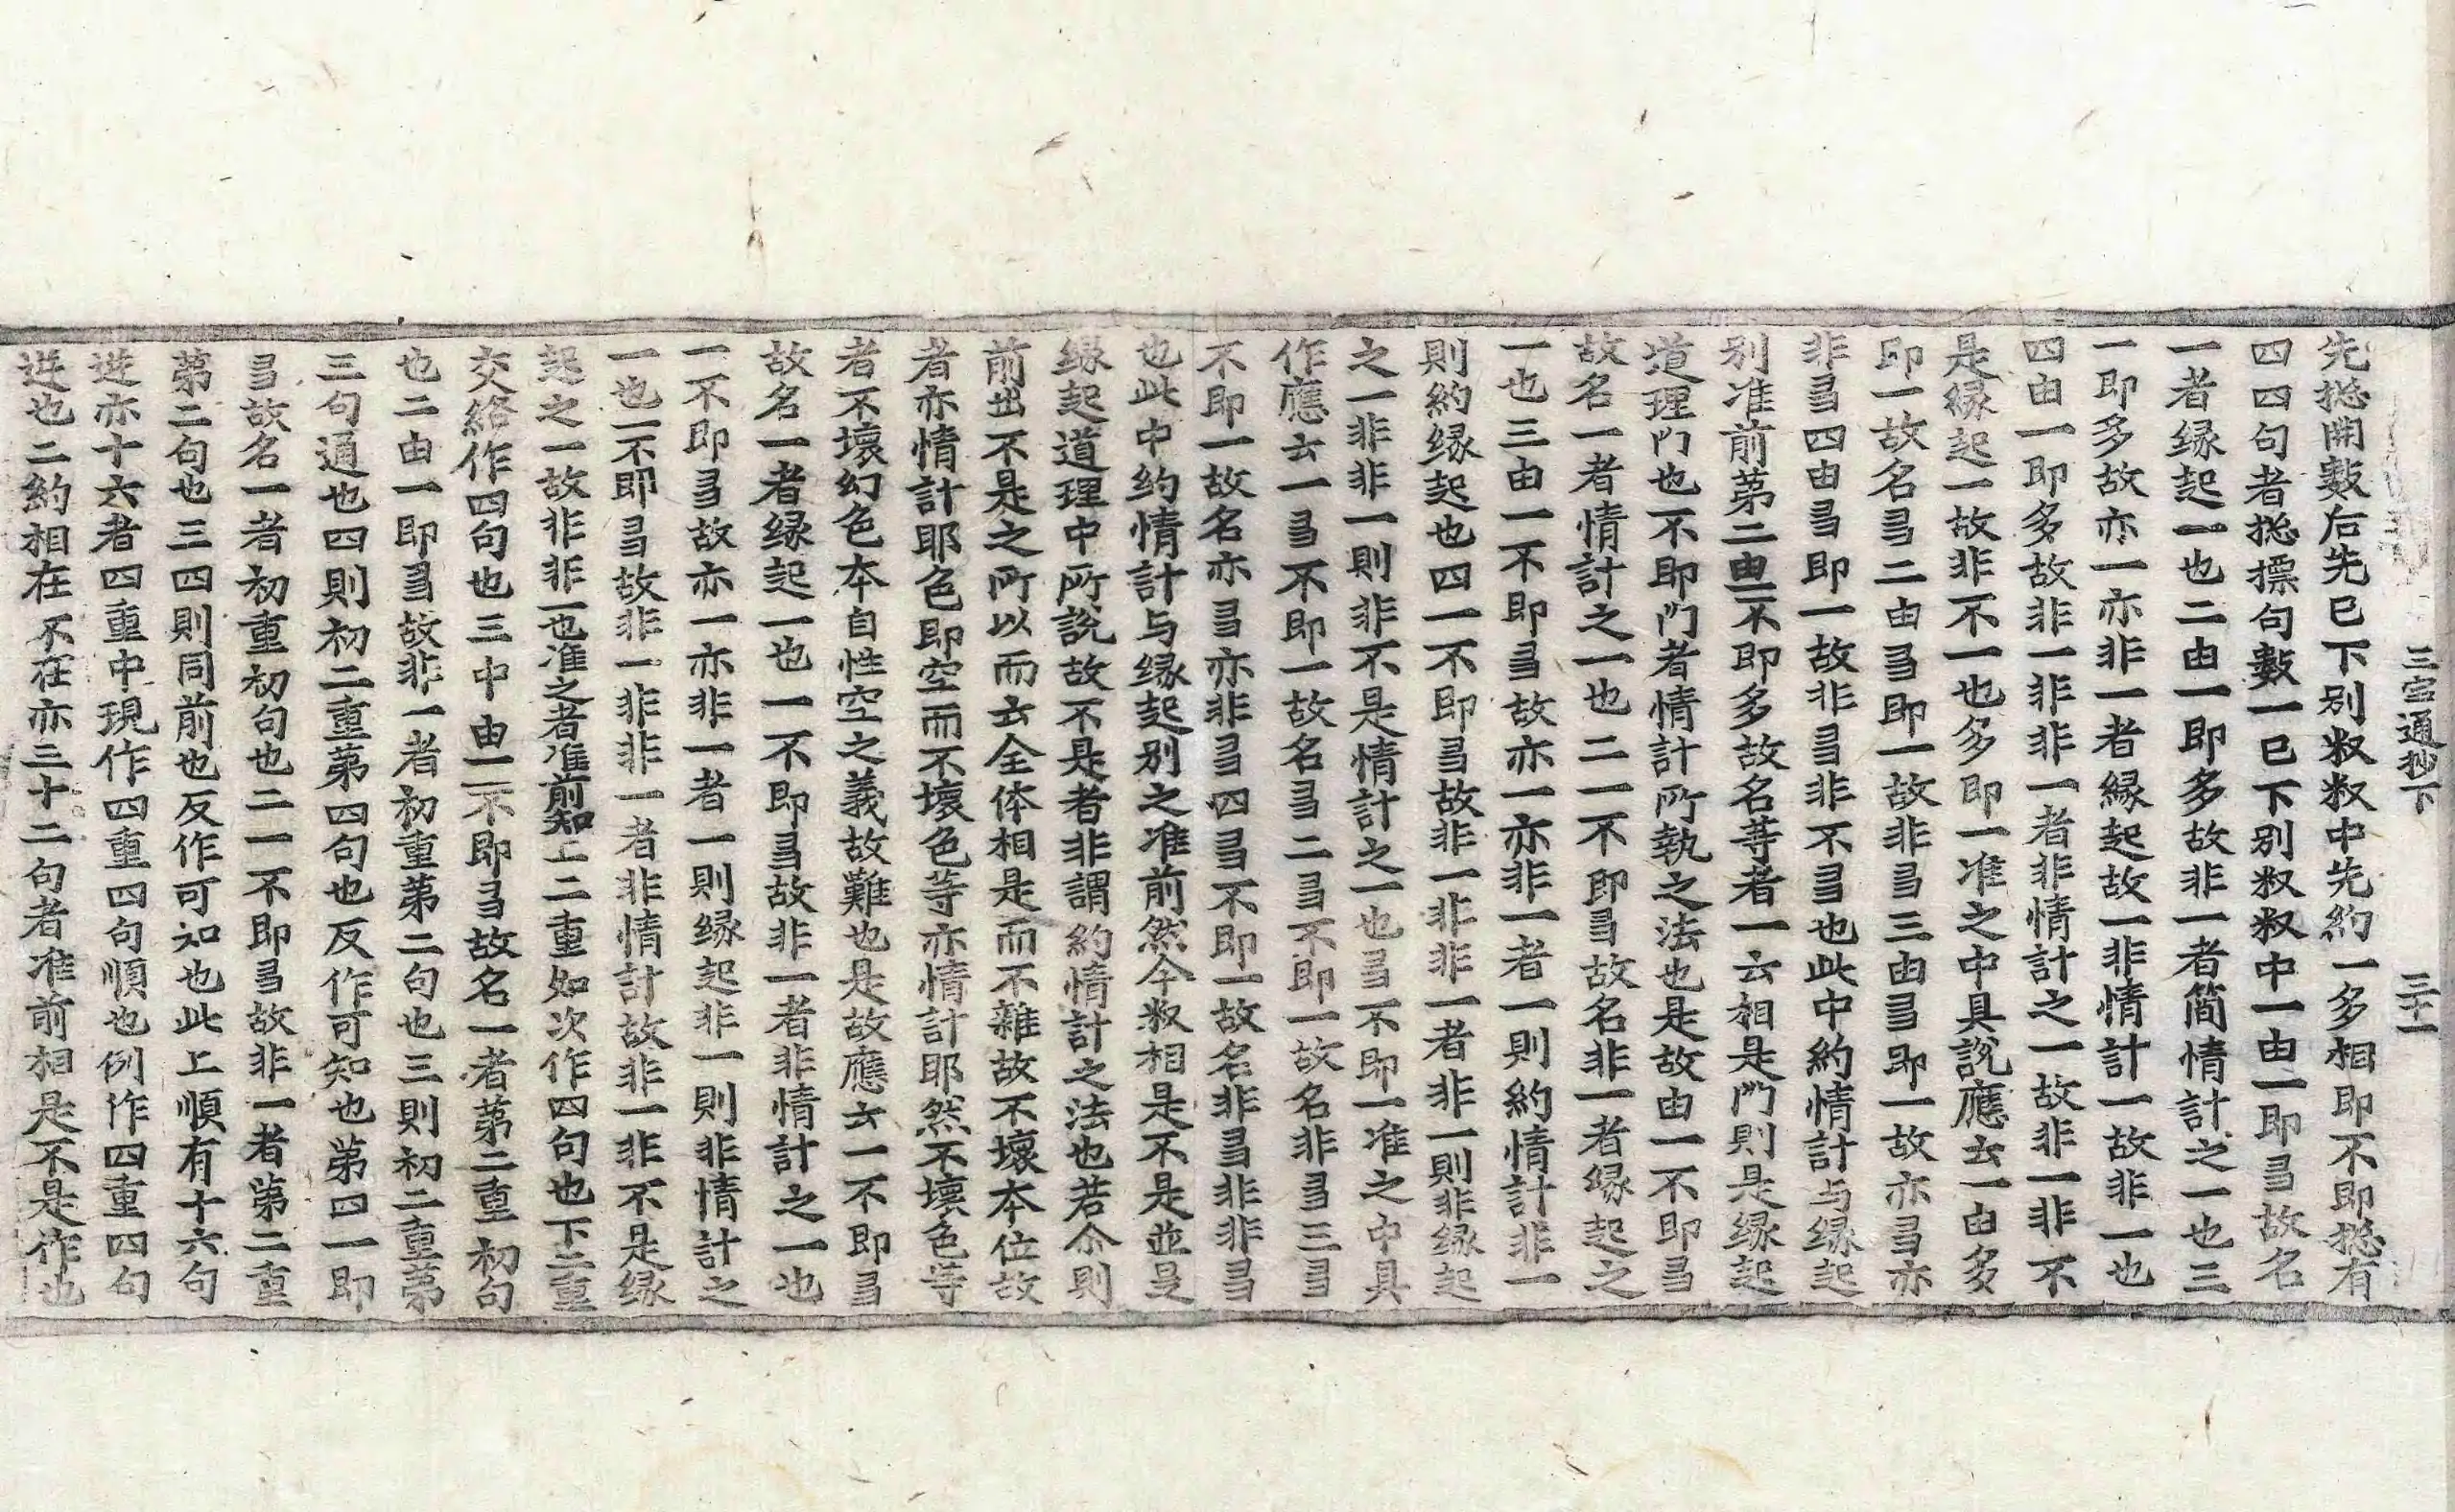 三宝通抄下　三十一
先捴開數后先已下別釈釈中先約一多相即不即捴有
四四句者捴摽句數一已下別釈釈中一由一即多故名
一者縁起一也二由一即多故非一者簡情計之一也三
一即多故亦一亦非一者縁起故一非情計一故非一也
四由一即多故非一非非一者非情計之一故非一非不
是縁起一故非不一也多即一准之中具說應云一由多
即一故名多二由多即一故非多三由多即一故亦多亦
非多四由多即一故非多非不多也此中約情計与縁起
別准前第二由一不即多故名等者一云相是門則是縁起
道理門也不即門者情計所執之法也是故由一不即多
故名一者情計之一也二一不即多故名非一者縁起之
一也三由一不即多故亦一亦非一者一則約情計非一
則約縁起也四一不即多故非一非非一者非一則非縁起
之一非非一則非不是情計之一也多不即一准之中具
作應云一多不即一故名多二多不即一故名非多三多
不即一故名亦多亦非多四多不即一故名非多非非多
也此中約情計与縁起別之准前然今釈相是不是並是
縁起道理中所說故不是者非謂約情計之法也若尒則
前出不是之所以而云全体相是而不雜故不壞本位故
者亦情計耶色即空而不壞色等亦情計耶然不壞色等
者不壞幻色本自性空之義故難也是故應云一不即多
故名一者縁起一也一不即多故非一者非情計之一也
一不即多故亦一亦非一者一則縁起非一則非情計之
一也一不即多故非一非非一者非情計故非一非不是縁
起之一故非非一也准之者准前知上二重如次作四句也下二重
交絡作四句也三中由一不即多故名一者第二重初句
也二由一即多故非一者初重第二句也三則初二重第
三句通也四則初二重第四句也反作可知也第四一即
多故名一者初重初句也二一不即多故非一者第二重
第二句也三四則同前也反作可知也此上順有十六句
逆亦十六者四重中現作四重四句順也例作四重四句
逆也二約相在不在亦三十二句者准前相是不是作也